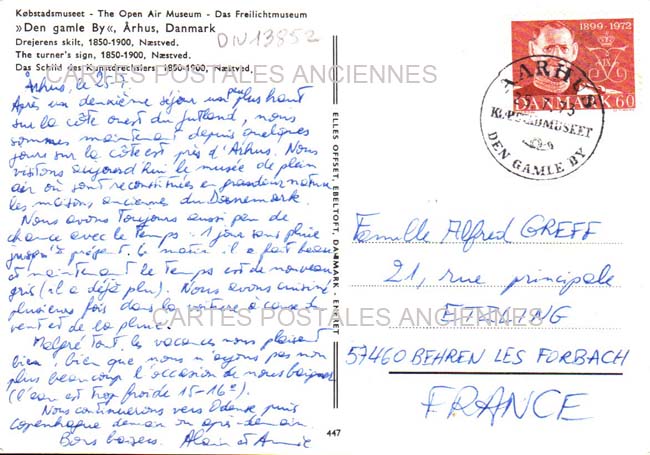 Købstadsmuseet - The Open Air Museum - Das Freilichtmuseum
»Den gamle By«, Århus, Danmark
Drejerens skilt, 1850-1900, Næstved.
The turner's sign, 1850-1900, Næstved.
Das Schild des Kunstdrechslers, 1850-1900, Næstved.
DIV13852
CARTES POSTALES ANCIENNES
Århus, le 25-7
Après un deuxième séjour un peu plus haut
sur la côte ouest du Jutland, nous
sommes maintenant depuis quelques
jours sur la côte est près d'Århus. Nous
visitons aujourd'hui le musée de plein
air où sont reconstituées en grandeur nature
les maisons anciennes du Danemark.
Nous avons toujours aussi peu de
chance avec le temps. 1 jour sans pluie
jusqu'à présent. Ce matin il a fait beau
et maintenant le temps est de nouveau
gris (il a déjà plu). Nous avons cuisiné
plusieurs fois dans la voiture à cause du
vent et de la pluie.
Malgré tout, les vacances nous plaisent
bien, bien que nous n'ayons pas non
plus beaucoup l'occasion de nous baigner
(l'eau est trop froide 15-16°).
Nous continuerons vers Odense puis
Copenhague demain ou après-demain.
Bons baisers. Alain et Annie
ELLES OFFSET, EBELTOFT, DANMARK - EFTERET
447
1899-1972
DANMARK 60
AARHUS
KØBSTADMUSEET
DEN GAMLE BY
Famille Alfred GREFF
21, rue principale
ETZLING
57460 BEHREN LES FORBACH
FRANCE
CARTES POSTALES ANCIENNES